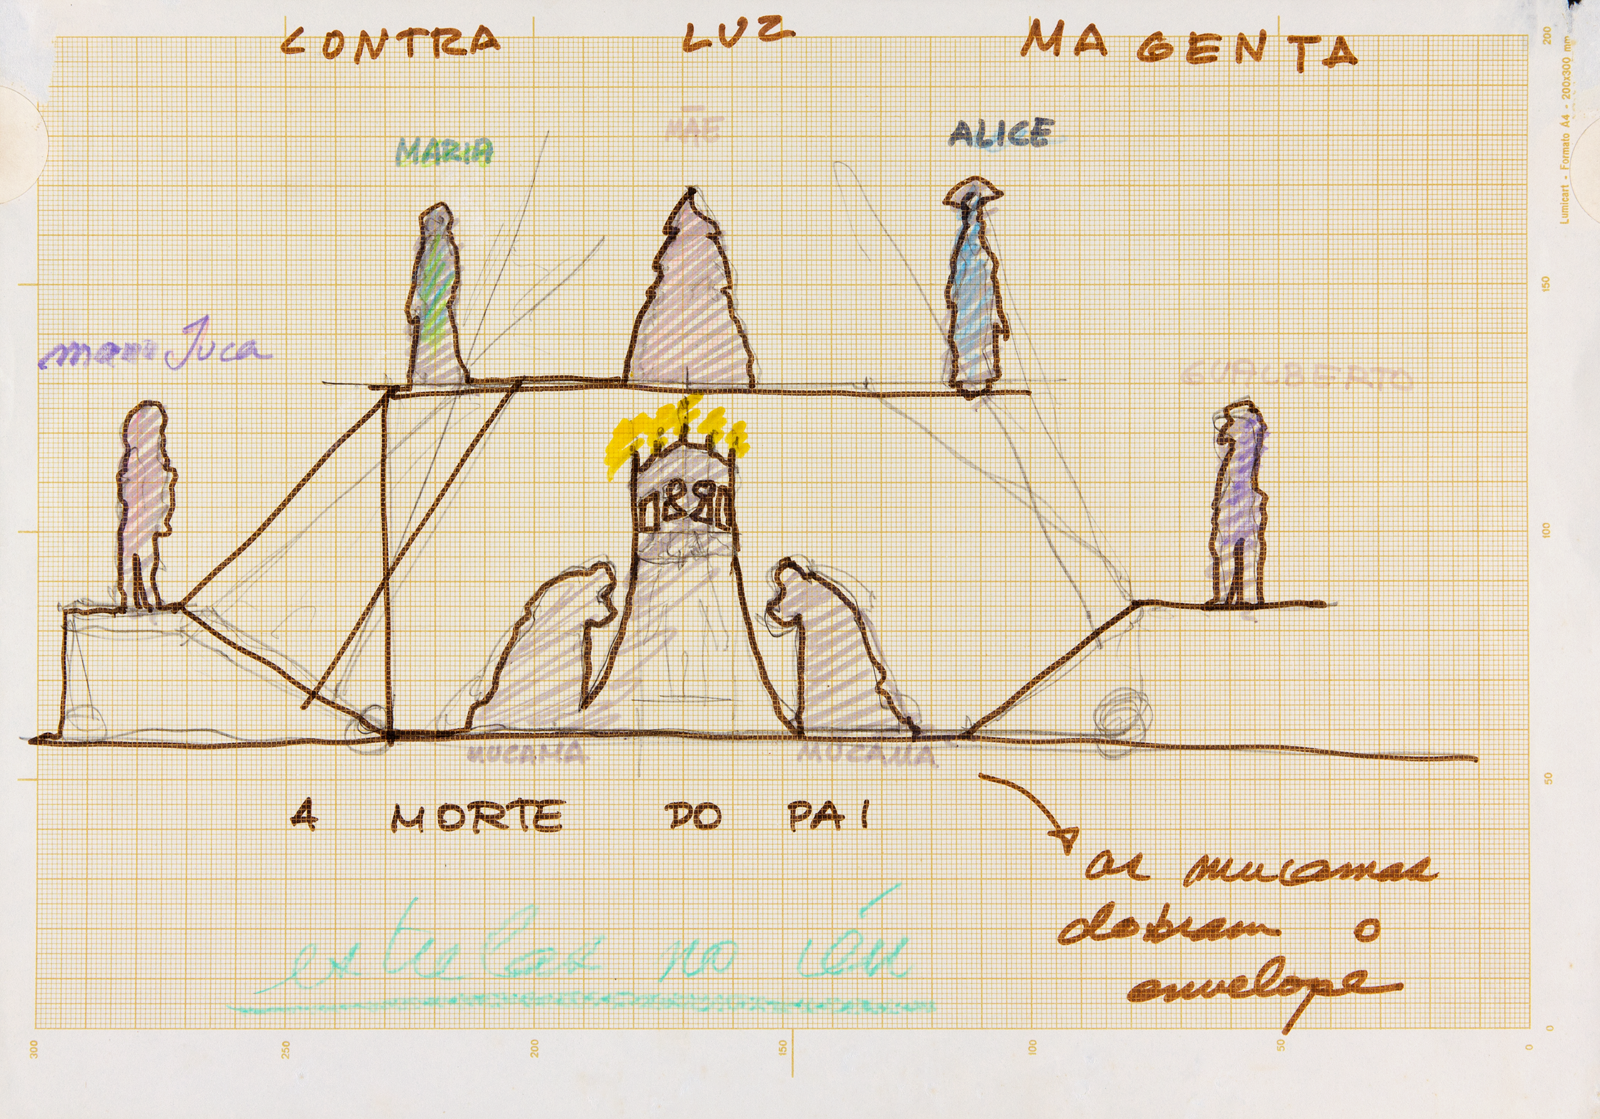 CONTRA LUZ MAGENTA
MARIA
MÃE
ALICE
Juca
GUALBERTO
MUCAMA
MUCAMA
A MORTE DO PAI
as mucamas
dobram o
envelope
estrelas no céu
Lumicart - Formato A4 - 200x300 mm
200
150
100
50
0
300
250
200
150
100
50
0